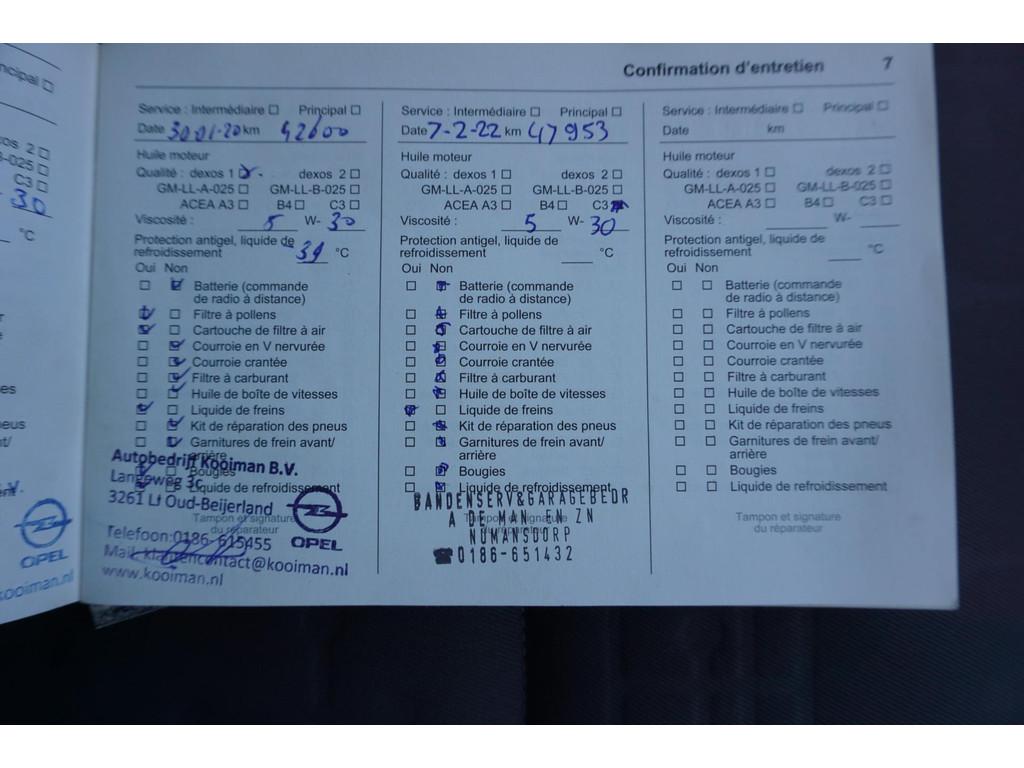 Confirmation d'entretien 7
Service : Intermédiaire Principal
Date 30-01-20 km 42600
Huile moteur
Qualité : dexos 1 dexos 2
GM-LL-A-025 GM-LL-B-025
ACEA A3 B4 C3
Viscosité : 5 W- 30
Protection antigel, liquide de
refroidissement °C
Oui Non
Batterie (commande
de radio à distance)
Filtre à pollens
Cartouche de filtre à air
Courroie en V nervurée
Courroie crantée
Filtre à carburant
Huile de boîte de vitesses
Liquide de freins
Kit de réparation des pneus
Garnitures de frein avant/
arrière
Bougies
Liquide de refroidissement
Tampon et signature
du réparateur
Autobedrijf Kooiman B.V.
Langeweg 3c
3261 LJ Oud-Beijerland
Telefoon:0186-615455
Mail: klantencontact@kooiman.nl
www.kooiman.nl
OPEL
Service : Intermédiaire Principal
Date 7-2-22 km 47953
Huile moteur
Qualité : dexos 1 dexos 2
GM-LL-A-025 GM-LL-B-025
ACEA A3 B4 C3
Viscosité : 5 W- 30
Protection antigel, liquide de
refroidissement °C
Oui Non
Batterie (commande
de radio à distance)
Filtre à pollens
Cartouche de filtre à air
Courroie en V nervurée
Courroie crantée
Filtre à carburant
Huile de boîte de vitesses
Liquide de freins
Kit de réparation des pneus
Garnitures de frein avant/
arrière
Bougies
Liquide de refroidissement
Tampon et signature
du réparateur
BANDENSERV&GARAGEBEDR
A DE MAN EN ZN
NUMANSDORP
☎0186-651432
Service : Intermédiaire Principal
Date km
Huile moteur
Qualité : dexos 1 dexos 2
GM-LL-A-025 GM-LL-B-025
ACEA A3 B4 C3
Viscosité : W-
Protection antigel, liquide de
refroidissement °C
Oui Non
Batterie (commande
de radio à distance)
Filtre à pollens
Cartouche de filtre à air
Courroie en V nervurée
Courroie crantée
Filtre à carburant
Huile de boîte de vitesses
Liquide de freins
Kit de réparation des pneus
Garnitures de frein avant/
arrière
Bougies
Liquide de refroidissement
Tampon et signature
du réparateur